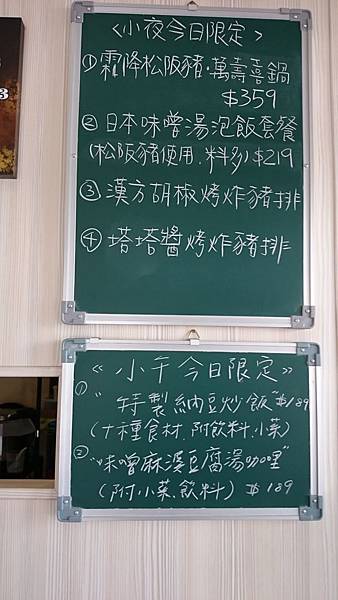 <小夜今日限定>
①霜降松阪豬·萬壽喜鍋
$359
②日本味噌湯泡飯套餐
(松阪豬使用.料多)$219
③漢方胡椒烤炸豬排
④塔塔醬烤炸豬排
《小午今日限定》
①"特製納豆炒飯"$189
(十種食材.附飲料.小菜)
②"味噌麻婆豆腐湯咖哩"
(附小菜.飲料) $189
3